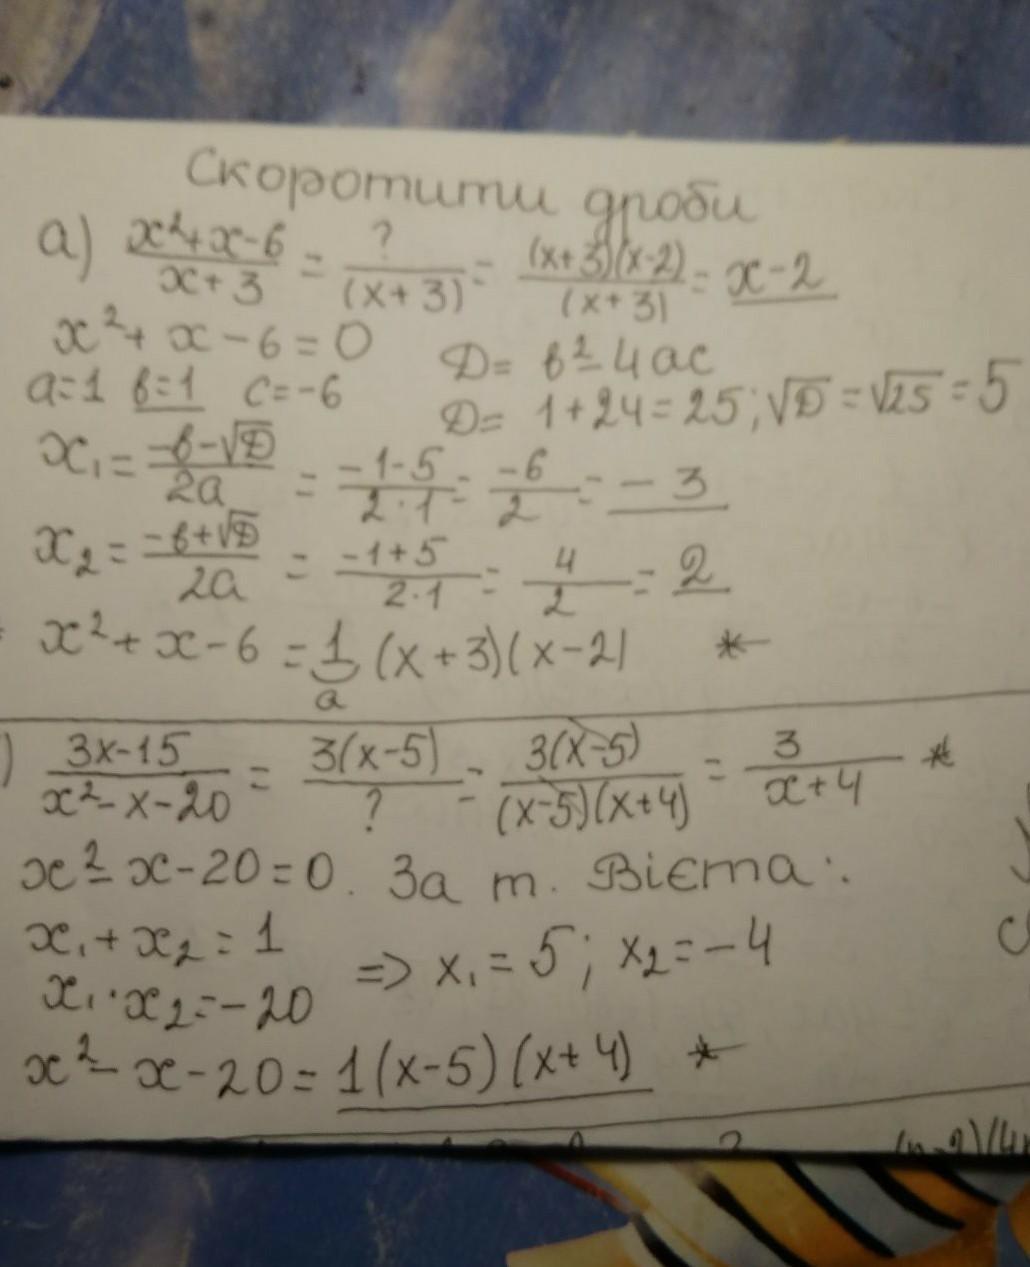 Скоротити дроби
а) (x²+x-6)/(x+3) = ?/(x+3) = (x+3)(x-2)/(x+3) = x-2
x²+x-6=0 D= b²-4ac
a=1 b=1 c=-6 D= 1+24=25; √D=√25=5
x₁= (-b-√D)/2a = (-1-5)/(2·1) = -6/2 = -3
x₂= (-b+√D)/2a = (-1+5)/(2·1) = 4/2 = 2
x²+x-6 = 1 (x+3)(x-2) *
a
) (3x-15)/(x²-x-20) = 3(x-5)/? = 3(x-5)/(x-5)(x+4) = 3/(x+4) *
x²-x-20=0. За т. Вієта:
x₁+x₂=1
=> x₁=5; x₂=-4
x₁·x₂=-20
x²-x-20= 1(x-5)(x+4) *